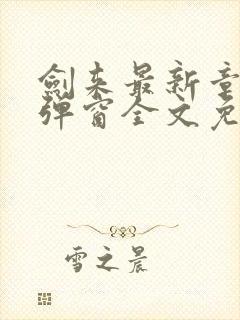 剑来最新章
弹窗全文免
雪之晨